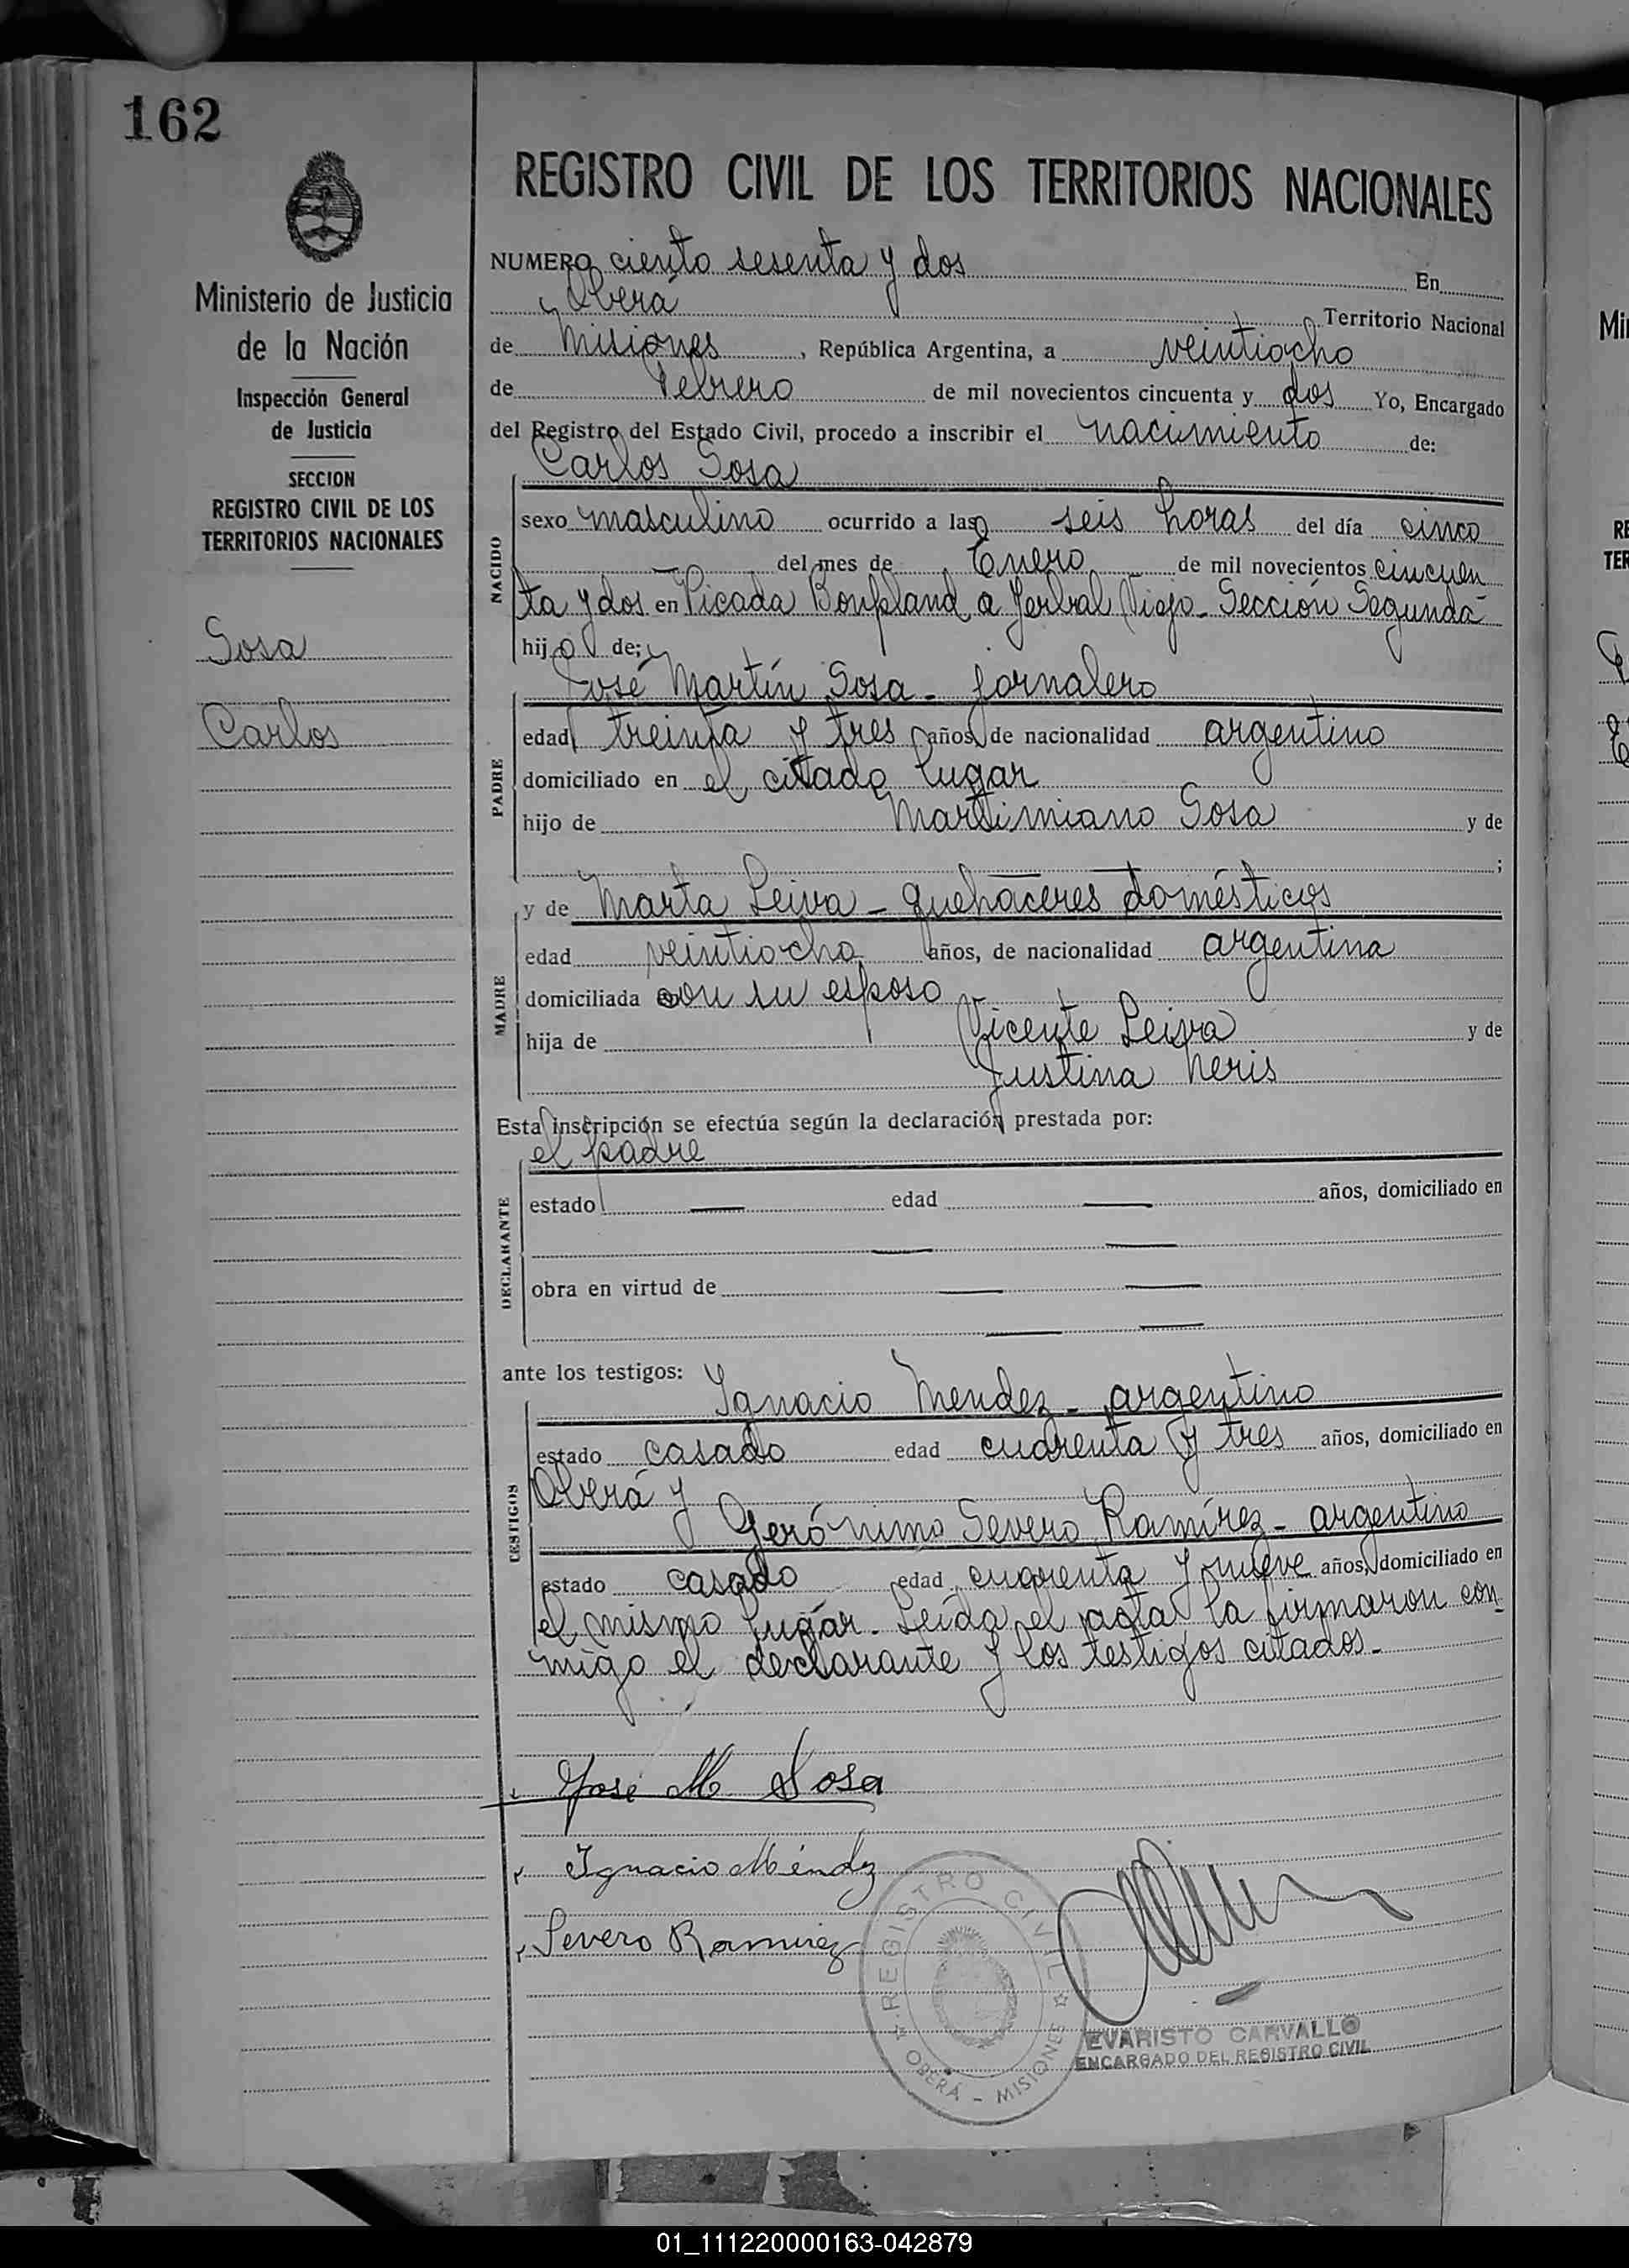 162
Ministerio de Justicia
de la Nación
Inspección General
de Justicia
SECCION
REGISTRO CIVIL DE LOS
TERRITORIOS NACIONALES
Sosa
Carlos
REGISTRO CIVIL DE LOS TERRITORIOS NACIONALES
NUMERO ciento sesenta y dos En
Oberá Territorio Nacional
de Misiones, República Argentina, a veintiocho
de Febrero de mil novecientos cincuenta y dos Yo, Encargado
del Registro del Estado Civil, procedo a inscribir el nacimiento de:
Carlos Sosa
NACIDO
sexo masculino ocurrido a las seis horas del día cinco
del mes de Enero de mil novecientos cincuen
ta y dos en Picada Bonpland a Yerbal Viejo - Sección Segunda -
hijo de;
José Martín Sosa - jornalero
PADRE
edad treinta y tres años, de nacionalidad argentino
domiciliado en el citado lugar
hijo de Martimiano Sosa y de
;
y de Marta Leiva - quehaceres domésticos
MADRE
edad veintiocho años, de nacionalidad argentina
domiciliada con su esposo
hija de Vicente Leiva y de
Justina Neris
Esta inscripción se efectúa según la declaración prestada por:
el padre
DECLARANTE
estado edad años, domiciliado en
obra en virtud de
ante los testigos:
Ignacio Mendez - argentino
TESTIGOS
estado casado edad cuarenta y tres años, domiciliado en
Oberá y
Gerónimo Severo Ramírez - argentino
estado casado edad cuarenta y nueve años, domiciliado en
el mismo lugar. Leída el acta la firmaron con
migo el declarante y los testigos citados.-
José M. Sosa
Ignacio Méndz
Severo Ramirez
REGISTRO CIVIL
OBERÁ - MISIONES
EVARISTO CARVALLO
ENCARGADO DEL REGISTRO CIVIL
Mi
RE
TER
01_111220000163-042879